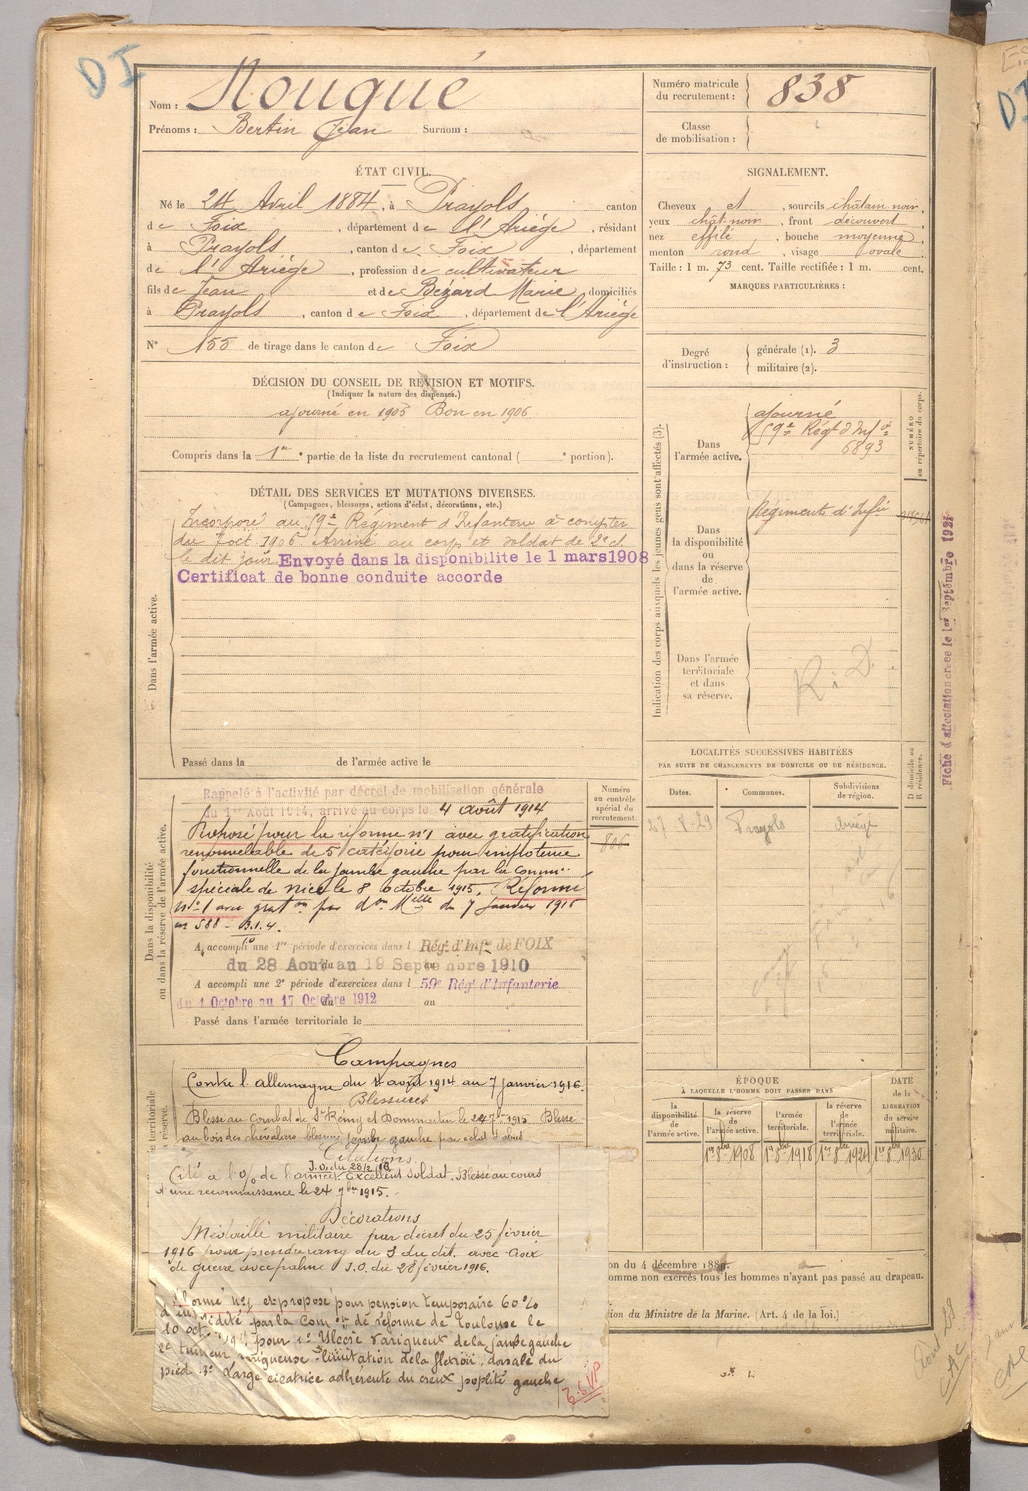 DI
Nom : Nougué
Prénoms : Bertin Jean Surnom :
Numéro matricule du recrutement : 838
Classe de mobilisation :
ÉTAT CIVIL.
Né le 24 Avril 1884, à Prayols canton
de Foix, département de l'Ariège, résidant
à Prayols, canton de Foix, département
de l'Ariège, profession de cultivateur
fils de Jean et de Bézard Marie, domiciliés
à Prayols, canton de Foix, département de l'Ariège
N° 155 de tirage dans le canton de Foix
SIGNALEMENT.
Cheveux et, sourcils châtain-noir,
yeux chât-noir, front découvert
nez effilé, bouche moyenne,
menton rond, visage ovale
Taille : 1 m. 73 cent. Taille rectifiée : 1 m. cent.
MARQUES PARTICULIÈRES :
Degré d'instruction : générale (1). 3
militaire (2).
DÉCISION DU CONSEIL DE REVISION ET MOTIFS.
(Indiquer la nature des dispenses.)
ajourné en 1905 Bon en 1906
Compris dans la 1re partie de la liste du recrutement cantonal ( e portion).
DÉTAIL DES SERVICES ET MUTATIONS DIVERSES.
(Campagnes, blessures, actions d'éclat, décorations, etc.)
Dans l'armée active.
Incorporé au 59e Régiment d'Infanterie à compter
du 7 oct. 1906. Arrivé au corps et soldat de 2e cl
le dit jour. Envoyé dans la disponibilite le 1 mars 1908
Certificat de bonne conduite accorde
Passé dans la de l'armée active le
Indication des corps auxquels les jeunes gens sont affectés (3).
NUMÉRO au répertoire du corps.
Dans l'armée active.
ajourné
59e Régt d'Infie
6893
Dans la disponibilité ou dans la réserve de l'armée active.
Régiments d'Infie
Dans l'armée territoriale et dans sa réserve.
R. D.
Fiche d'affectation créée le 1er Septembre 1921
LOCALITÉS SUCCESSIVES HABITÉES
PAR SUITE DE CHANGEMENTS DE DOMICILE OU DE RÉSIDENCE.
D domicile ou R résidence.
Dates. Communes. Subdivisions de région.
27-8-29 Prayols
Dans la disponibilité ou dans la réserve de l'armée active.
Numéro au contrôle spécial du recrutement.
806
Rappelé à l'activité par décret de mobilisation générale
du 1er Août 1914, arrivé au corps le 4 août 1914
Proposé pour la réforme n°1 avec gratification
renouvelable de 5 catégorie pour impotence
fonctionnelle de la jambe gauche par la comm.
spéciale de Nice le 8 octobre 1915. Réformé
n° 1 avec gration par don Mlle du 7 janvier 1916
n° 588 -
A accompli une 1re période d'exercices dans l Rég. d'Infie de FOIX
du 28 Aout au 19 Septembre 1910
A accompli une 2e période d'exercices dans l 59e Régt d'Infanterie
du 1 Octobre au 17 Octobre 1912
Passé dans l'armée territoriale le
Campagnes
Contre l'Allemagne du 4 août 1914 au 7 janvier 1916.
Blessures
Blessé au combat de St Rémy et Dommartin le 24 7bre 1915 Blessé
au bois des chevaliers blessure jambe gauche par éclat d'obus
Citations
Cité à l'o/ de l'armée J.O. du 28/2/16 Excellent soldat. Blessé au cours
d'une reconnaissance le 24 7bre 1915.
Décorations
Médaille militaire par décret du 25 février
1916 pour prendre rang du 3 du dit. avec Croix
de guerre avec palme J.O. du 28 février 1916.
Réformé n°1 et proposé pour pension temporaire 60 %
d'invalidité par la Comon de réforme de Toulouse le
10 oct. pour 1° Ulcère variqueux de la jambe gauche
2° tumeur variqueuse 3° limitation de la flexion dorsale du
pied 4° Large cicatrice adhérente du creux poplité gauche
ÉPOQUE
À LAQUELLE L'HOMME DOIT PASSER DANS
la disponibilité de l'armée active. la réserve de l'armée active. l'armée territoriale. la réserve de l'armée territoriale.
DATE de la LIBÉRATION du service militaire.
1er 8bre 1908 1er 8bre 1918 1er 8bre 1924 1er 8bre 1930
on du 4 décembre 1889.
omme non exercés tous les hommes n'ayant pas passé au drapeau.
ion du Ministre de la Marine. (Art. 4 de la loi.)